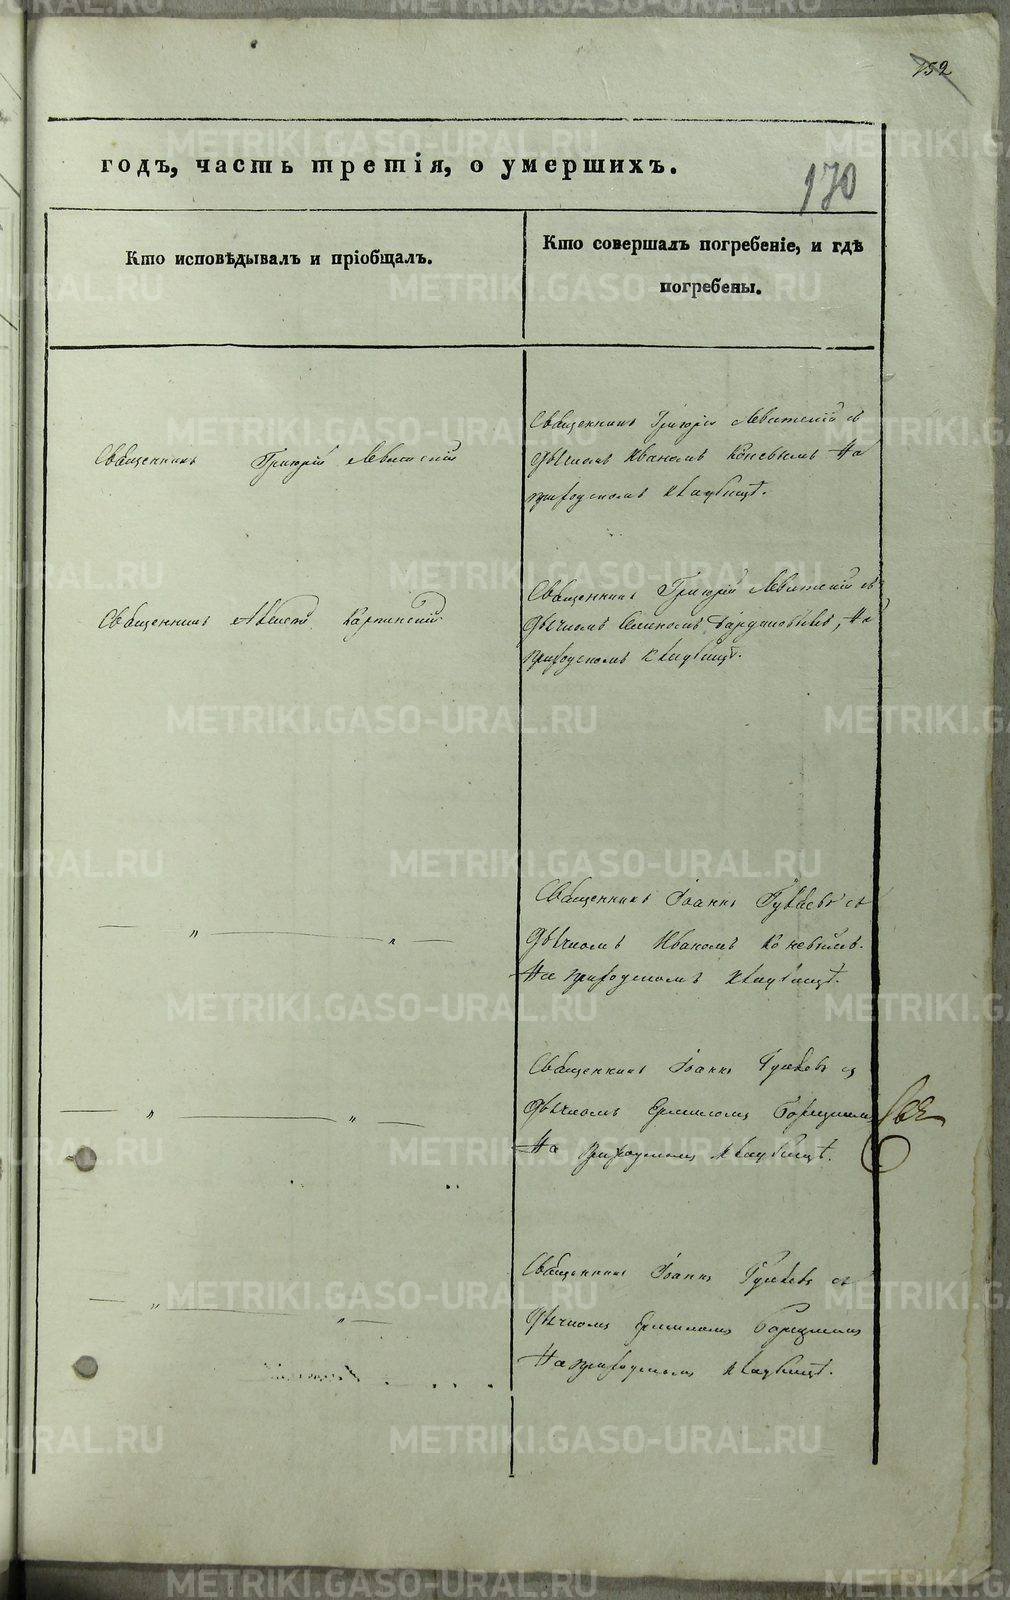 152
годъ, часть третія, о умершихъ.
170
Кто исповѣдывалъ и пріобщалъ.
Кто совершалъ погребеніе, и гдѣ
погребены.
Священникъ Григорій Левитскій
Священникъ Григорій Левитскій съ
дьячкомъ Иваномъ Коневымъ на
приходскомъ кладбищѣ.
Священникъ Алексѣй Карпинскій
Священникъ Григорій Левитскій съ
дьячкомъ на
приходскомъ кладбищѣ.
— „ — „ —
Священникъ Іоаннъ съ
дьячкомъ Иваномъ Коневымъ
На приходскомъ кладбищѣ.
— „ — „ —
Священникъ Іоаннъ съ
дьячкомъ
На приходскомъ кладбищѣ.
— „ — „ —
Священникъ Іоаннъ съ
дьячкомъ
На приходскомъ кладбищѣ.
METRIKI.GASO-URAL.RU